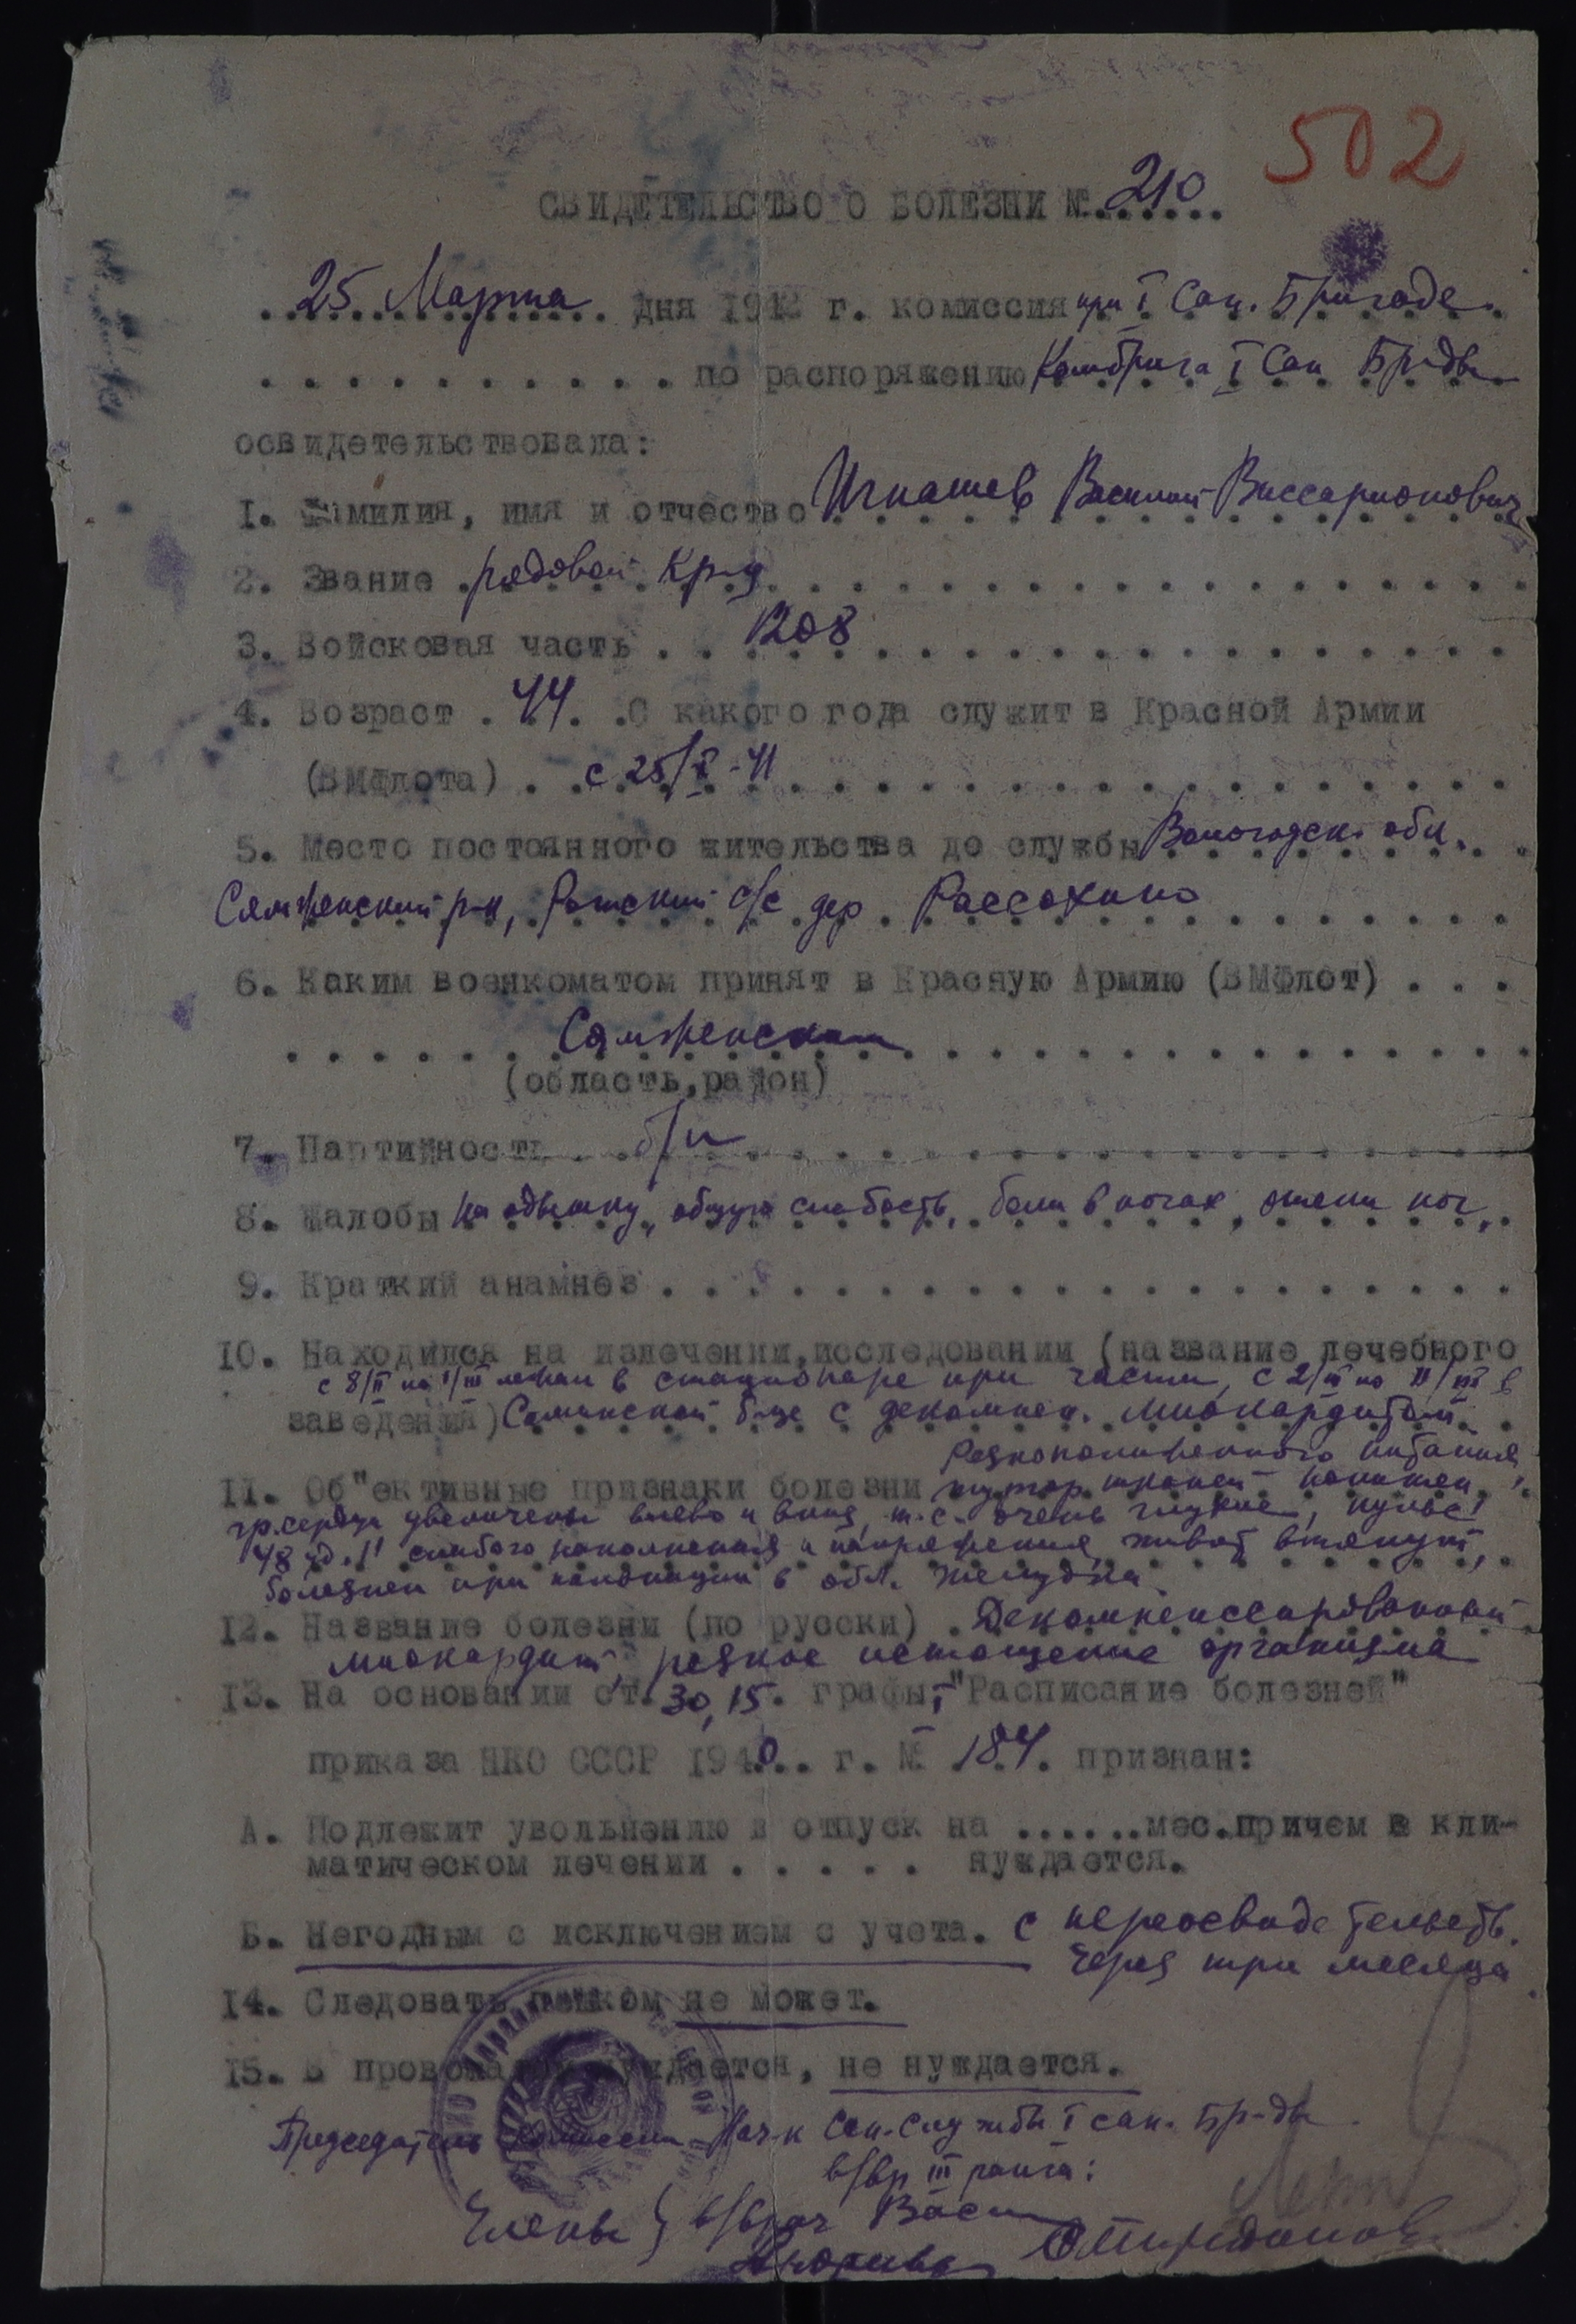 502
СВИДЕТЕЛЬСТВО О БОЛЕЗНИ №. 210
25 Марта дня 1942 г. комиссия при I Сап. Бригаде
по распоряжению Комбрига I Сап Бр-ды
освидетельствовала:
1. Фамилия, имя и отчество Игнашев Василий Виссарионович
2. Звание рядовой Кр-ц
3. Войсковая часть 1208
4. Возраст 44. С какого года служит в Красной Армии
(ВМФлота) с 25/X-41
5. Место постоянного жительства до службы Вологодск. обл.
Сямженский р-н, с/с дер Рассохино
6. Каким военкоматом принят в Красную Армию (ВМФлот)
Сямженским
(область, район)
7. Партийность б/п
8. Жалобы на одышку, общую слабость, боли в ногах, отеки ног
9. Краткий анамнез
10. Находился на излечении, исследовании (название лечебного
с 8/II по 1/III лежал в стационаре при части, с 2/III по 11/III в
заведения) б-це с декомпен. миокардитом
резкопониженного питания,
11. Об"ективные признаки болезни тургор тканей понижен,
гр. сердца увеличены влево и вниз, т.с. очень глухие, пульс
48 уд. 1' слабого наполнения и напряжения, живот втянут,
болезнен при пальпации в обл. желудка
12. Название болезни (по русски) Декомпенссированный
миокардит, резкое истощение организма
13. На основании ст. 30, 15. графы I "Расписание болезней"
приказа НКО СССР 1940.. г. № 184. признан:
А. Подлежит увольнению в отпуск на ......мес.причем в кли-
матическом лечении . . . . . нуждается.
Б. Негодным с исключением с учета. с переосвидетельств.
через три месяца
14. Следовать пешком не может.
15. В провожатом нуждается, не нуждается.
Председатель комиссии Нач-к Сан-службы I сап. Бр-ды
в/вр III ранга:
Члены } в/врач